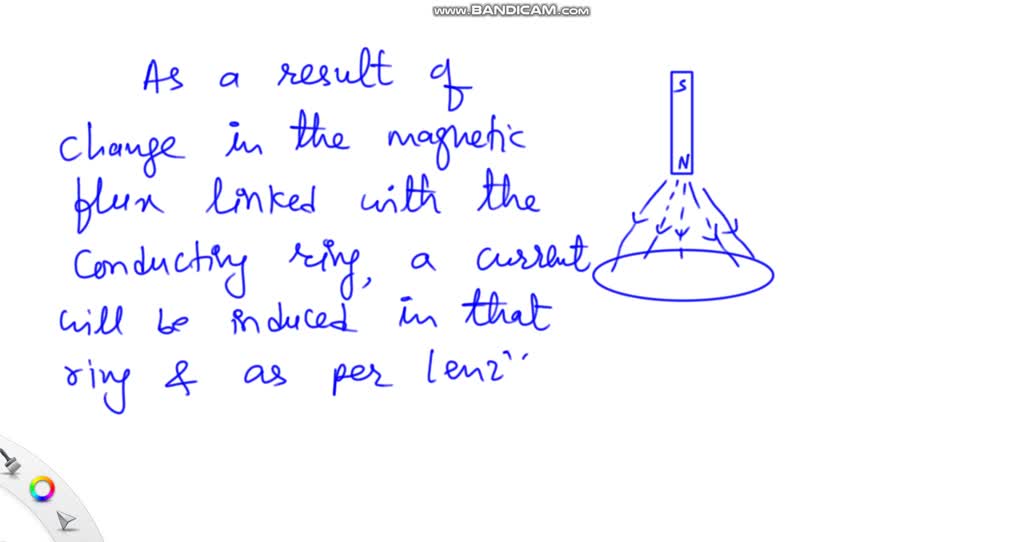 www.BANDICAM.com
As a result of
change in the magnetic
flux linked with the
conducting ring, a current
will be induced in that
ring & as per lenz''
S
N